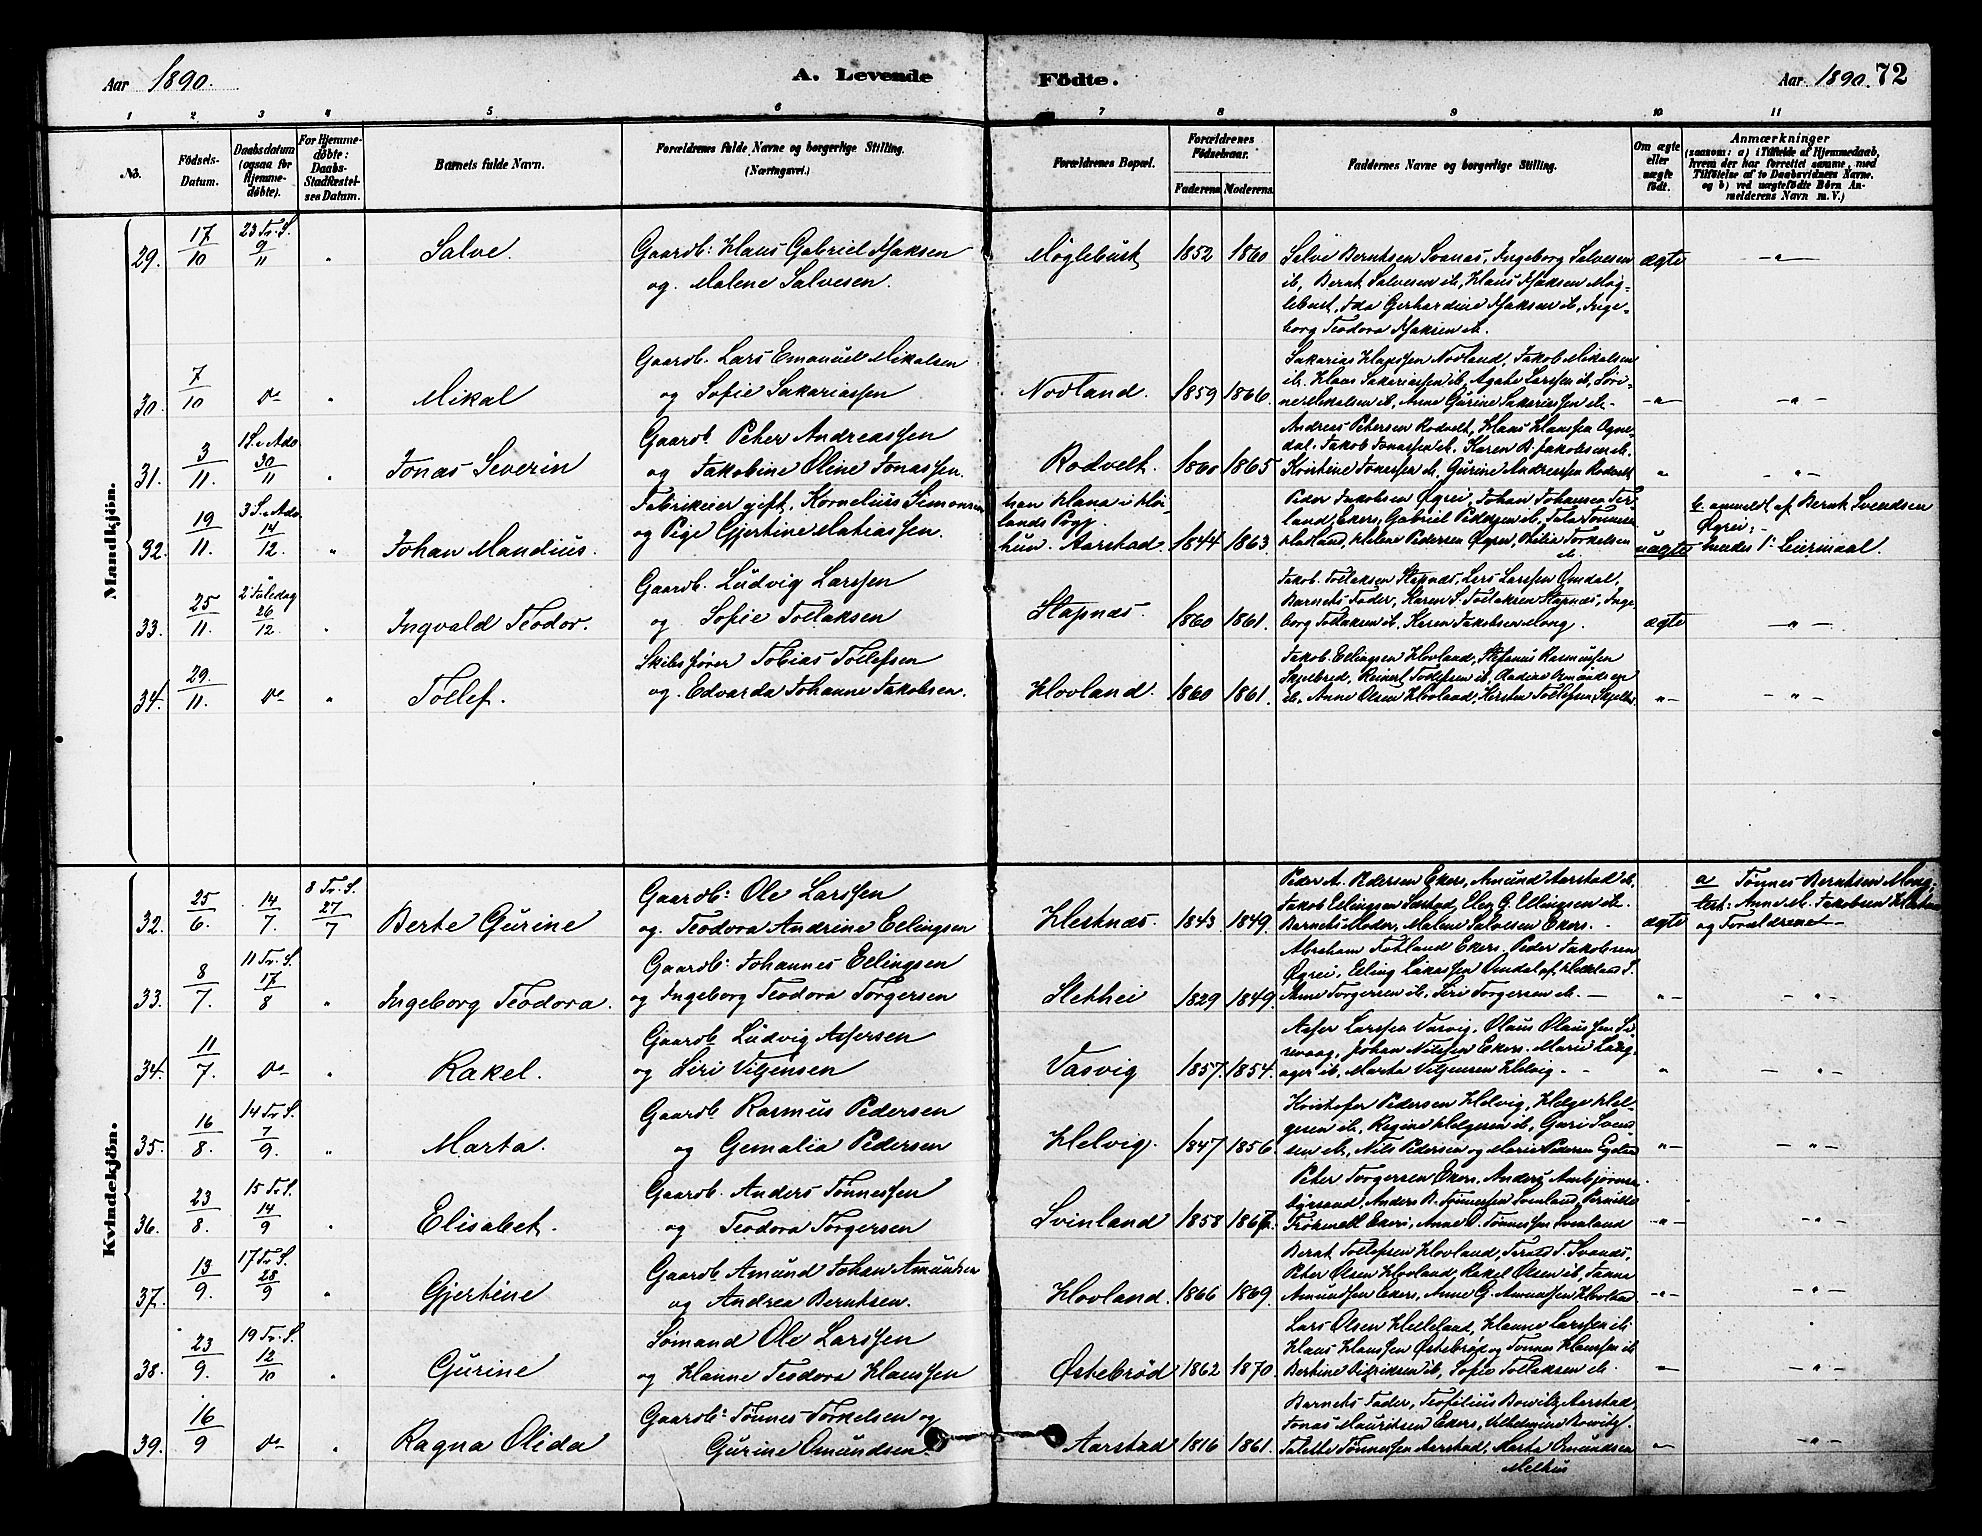 Aar 1890.
A. Levende
Födte.
Aar 1890. 72
1 2 3 4 5 6 7 8 9 10 11
No. Fødsels-Datum. Daabsdatum (ogsaa for Hjemme-døbte). For Hjemme-døbte: Daabs-Stadfæstel-ses Datum. Barnets fulde Navn. Forældrenes fulde Navne og borgerlige Stilling. (Næringsvei.) Forældrenes Bopæl. Forældrenes Fødselsaar. Faderens Moderens Faddernes Navne og borgerlige Stilling. Om ægte eller uægte født. Anmærkninger (saasom: a) i Tilfælde af Hjemmedaab, hvem der har forrettet samme, med Tilføielse af to Daabsvidners Navne, og b) ved uægtefødte Børn An-melderens Navn m. V.)
Mandkjön.
29. 17/10 23 Tr. S. 9/11 " Salve. Gaardb: Klaus Gabriel Isaksen
og Malene Salvesen. Møglebust 1852 1860 Salve Berntsen Svanæs, Ingeborg Salvesen ægte — " —
ib, Bernt Salvesen ib, Klaus Isaksen Møg-
lebust, Ida Gerhardine Isaksen ib, Inge-
borg Teodora Isaksen ib.
30. 7/10 do " Mikal Gaardb. Lars Emanuel Mikalsen
og Sofie Sakariassen Nodland. 1859 1866. Sakarias Klaussen Nodland, Jakob Mikalsen
ib. Klaus Sakariassen ib, Agate Larssen ib, Søri-
ne Mikalsen ib, Anne Gurine Sakariassen ib. — " — — " —
31. 3/11. 1 S. i Adv. 30/11 " Jonas Severin Gaardb. Peter Andreassen
og Jakobine Oline Jonassen. Rodvelt. 1860 1865 Andreas Petersen Rodvelt, Klaus Klaussen Ogne-
dal. Jakob Jonassen ib. Karen B. Jakobsen ib.
Kristine Jonassen ib, Gurine Andreassen Rodvelt " — " —
32. 19/11. 3 S. i Adv. 14/12. " Johan Mandius. Fabrikeier gift, Kornelius Simonsen
og Pige Gjertine Matiassen. han Klana i Høi-
lands Pgj.
hun. Aarstad. 1844 1863. Peder Jakobsen Øgrei, Johan Johansen
land Ekers, Gabriel Peddersen ib, Tønnesen
Helene Pedersen Øgrei, Torkelsen
ib. uægte b. anmeldt af Bernt Svendsen
Øgrei;
hendes 1ste Leiermaal.
33. 25/11. 2 Juledag 26/12. " Ingvald Teodor. Gaardb. Ludvig Larssen
og Sofie Tollaksen Stapnæs. 1860 1861. Jakob Tollaksen Stapnæs, Lars Larssen Omdal,
Barnets Fader, Karen S. Tollaksen Stapnæs, Inge-
borg Tollaksen ib. Karen Jakobsen Mong. ægte — " —
34. 29./11. do " Tollef. Skibsfører Tobias Tollefsen
og Edvarda Johanne Jakobsen. Hovland. 1860 1861. Jakob Ellingsen Hovland, Stefanus Rasmussen
Skjelbred, Reinert Tollefsen ib, Omundsen
ib. Anne Olsen Hovland, Kirsten Tollefsen Skjelbr. — " — — " —
Kvindekjön.
32. 25/6. 14/7. 8 Tr. S. 27/7 Berte Gurine Gaardb: Ole Larssen
og Teodora Andrine Ellingsen Hestnæs. 1843 1849. Peder A. Pedersen Ekers, Amund Aarstad ib,
Jakob Ellingsen Sæstad, Elen G. Ellingsen ib.
Barnets Moder, Malene Salvesen Ekers. ægte a Tønnes Berntsen Mong;
Anne M. Jakobsen Hestnæs
og Forældrene —
33. 8/7. 11 Tr. S. 17/8 " Ingeborg Teodora. Gaardb: Johannes Ellingsen
og Ingeborg Teodora Torgersen Slethei 1829 1849. Abraham Ekers. Peder Jakobsen
Øgrei, Elling Omdal af Helleland S.
Anne Torgersen ib, Siri Torgersen ib. — " — — " —
34. 11/7. do " Rakel. Gaardb Ludvig Assersen
og Siri Viljensen Vasvig 1857. 1854. Asser Larssen Vasvig, Olaus Olaussen Si-
revaag, Johan Nilssen Ekers. Marie Laug-
ager ib, Marta Viljensen Helvig — " — " —
35. 16/8. 14 Tr. S. 7/9. " Marta. Gaardb Rasmus Pedersen
og Gemalia Pedersen Helvig. 1847 1856. Kristofer Pedersen Helvig, Helge Hel-
gesen ib, Regine Helgesen ib, Guri Svend
sen ib, Nils Pedersen og Marie Pedersen — " — — " —
36. 23/8. 15 Tr. S. 14/9 " Elisabet. Gaardb. Anders Tønnessen
og Teodora Torgersen Svinland 1858 1867. Peter Torgersen Ekers. Anders Ambjørnsen
Anders B. Tønnessen Svinland,
Ekers, Anne Tønnessen Svinland — " — — " —
37. 13/9. 17 Tr. S. 28/9 " Gjertine Gaardb. Amund Johan Amundsen
og Andrea Berntsen. Hovland. 1866 1869. Berat Tollefsen Hovland, Svanæs,
Peter Olsen Hovland, Rakel Olsen ib,
Amundsen Ekers, Anne G. Amundsen Hovland — " — — " —
38. 23/9. 19 Tr. S. 12/10 " Gurine Sømand Ole Larssen
og Hanne Teodora Klaussen Østebrød 1862 1870. Lars Olsen Helleland, Hanne Larssen ib
Klaus Klaussen Østebrød og Tønnes Klaussen ib
Bertine Sigfridsen ib, Sofie Tollaksen ib. — — " —
39. 16/9 do " Ragna Olida Gaardb: Tønnes Torkelsen og
Gurine Omundsen. Aarstad 1816 1861. Barnets Fader, Teofilius Bowitz Aarstad
Jonas Mauritsen Ekers, Vilhelmine Bowitz.
Talette Tønnessen Aarstad, Marta Omundsen
Melhus — " — — " —